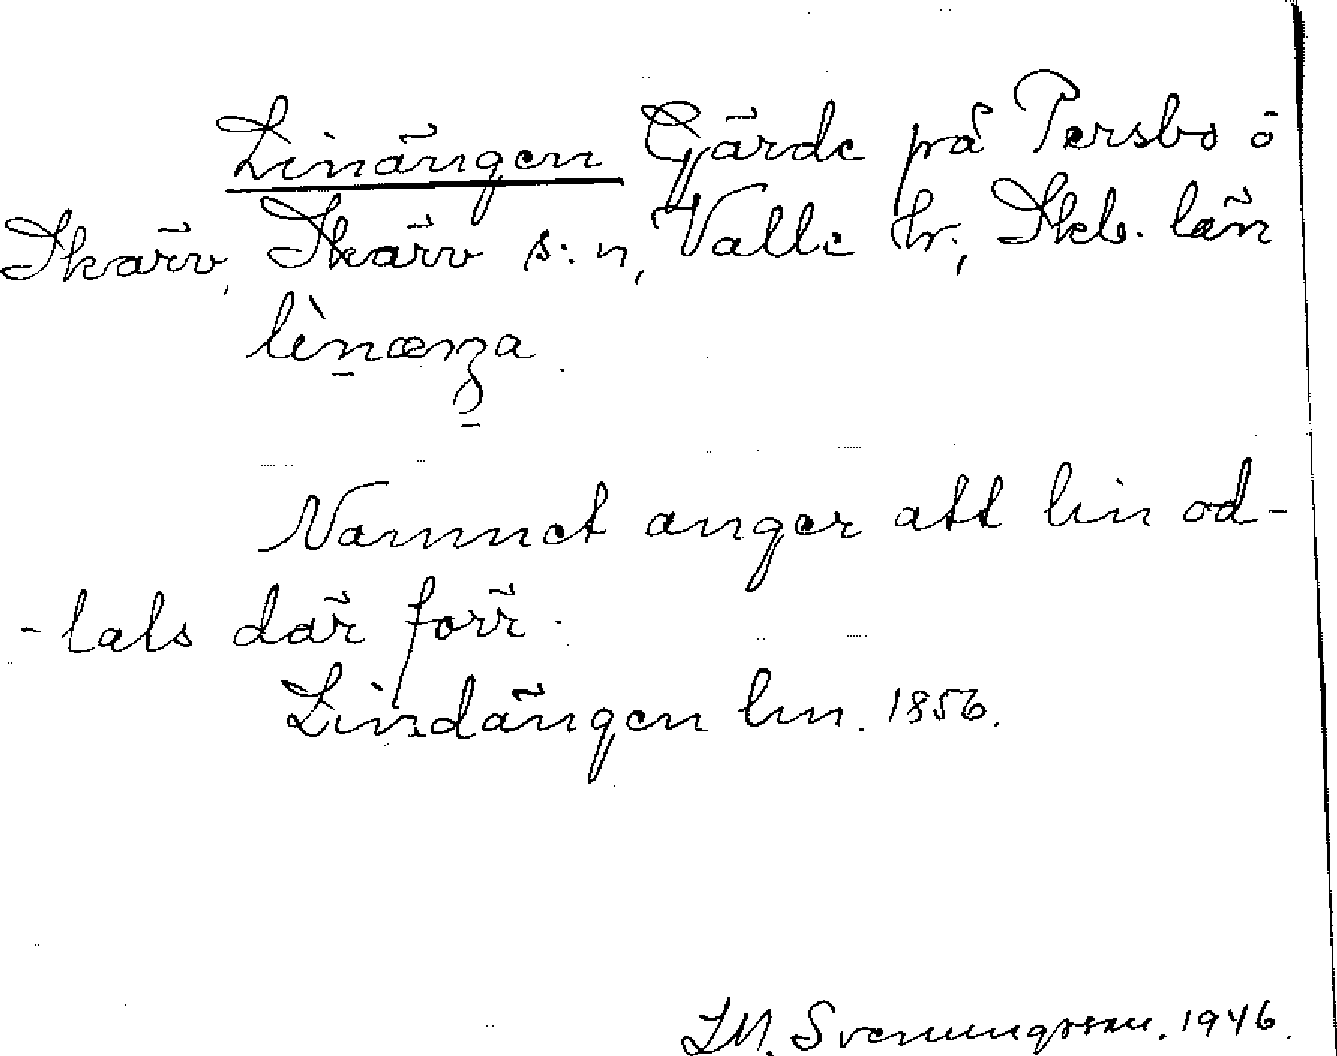 Linängen Gärde på Persbo ö
Skärv, Skärv s:n, Valle hr; Skb. län
Namnet anger att lin od-
-lats där förr.
Lindängen lm. 1856.
Svenungsson. 1946.